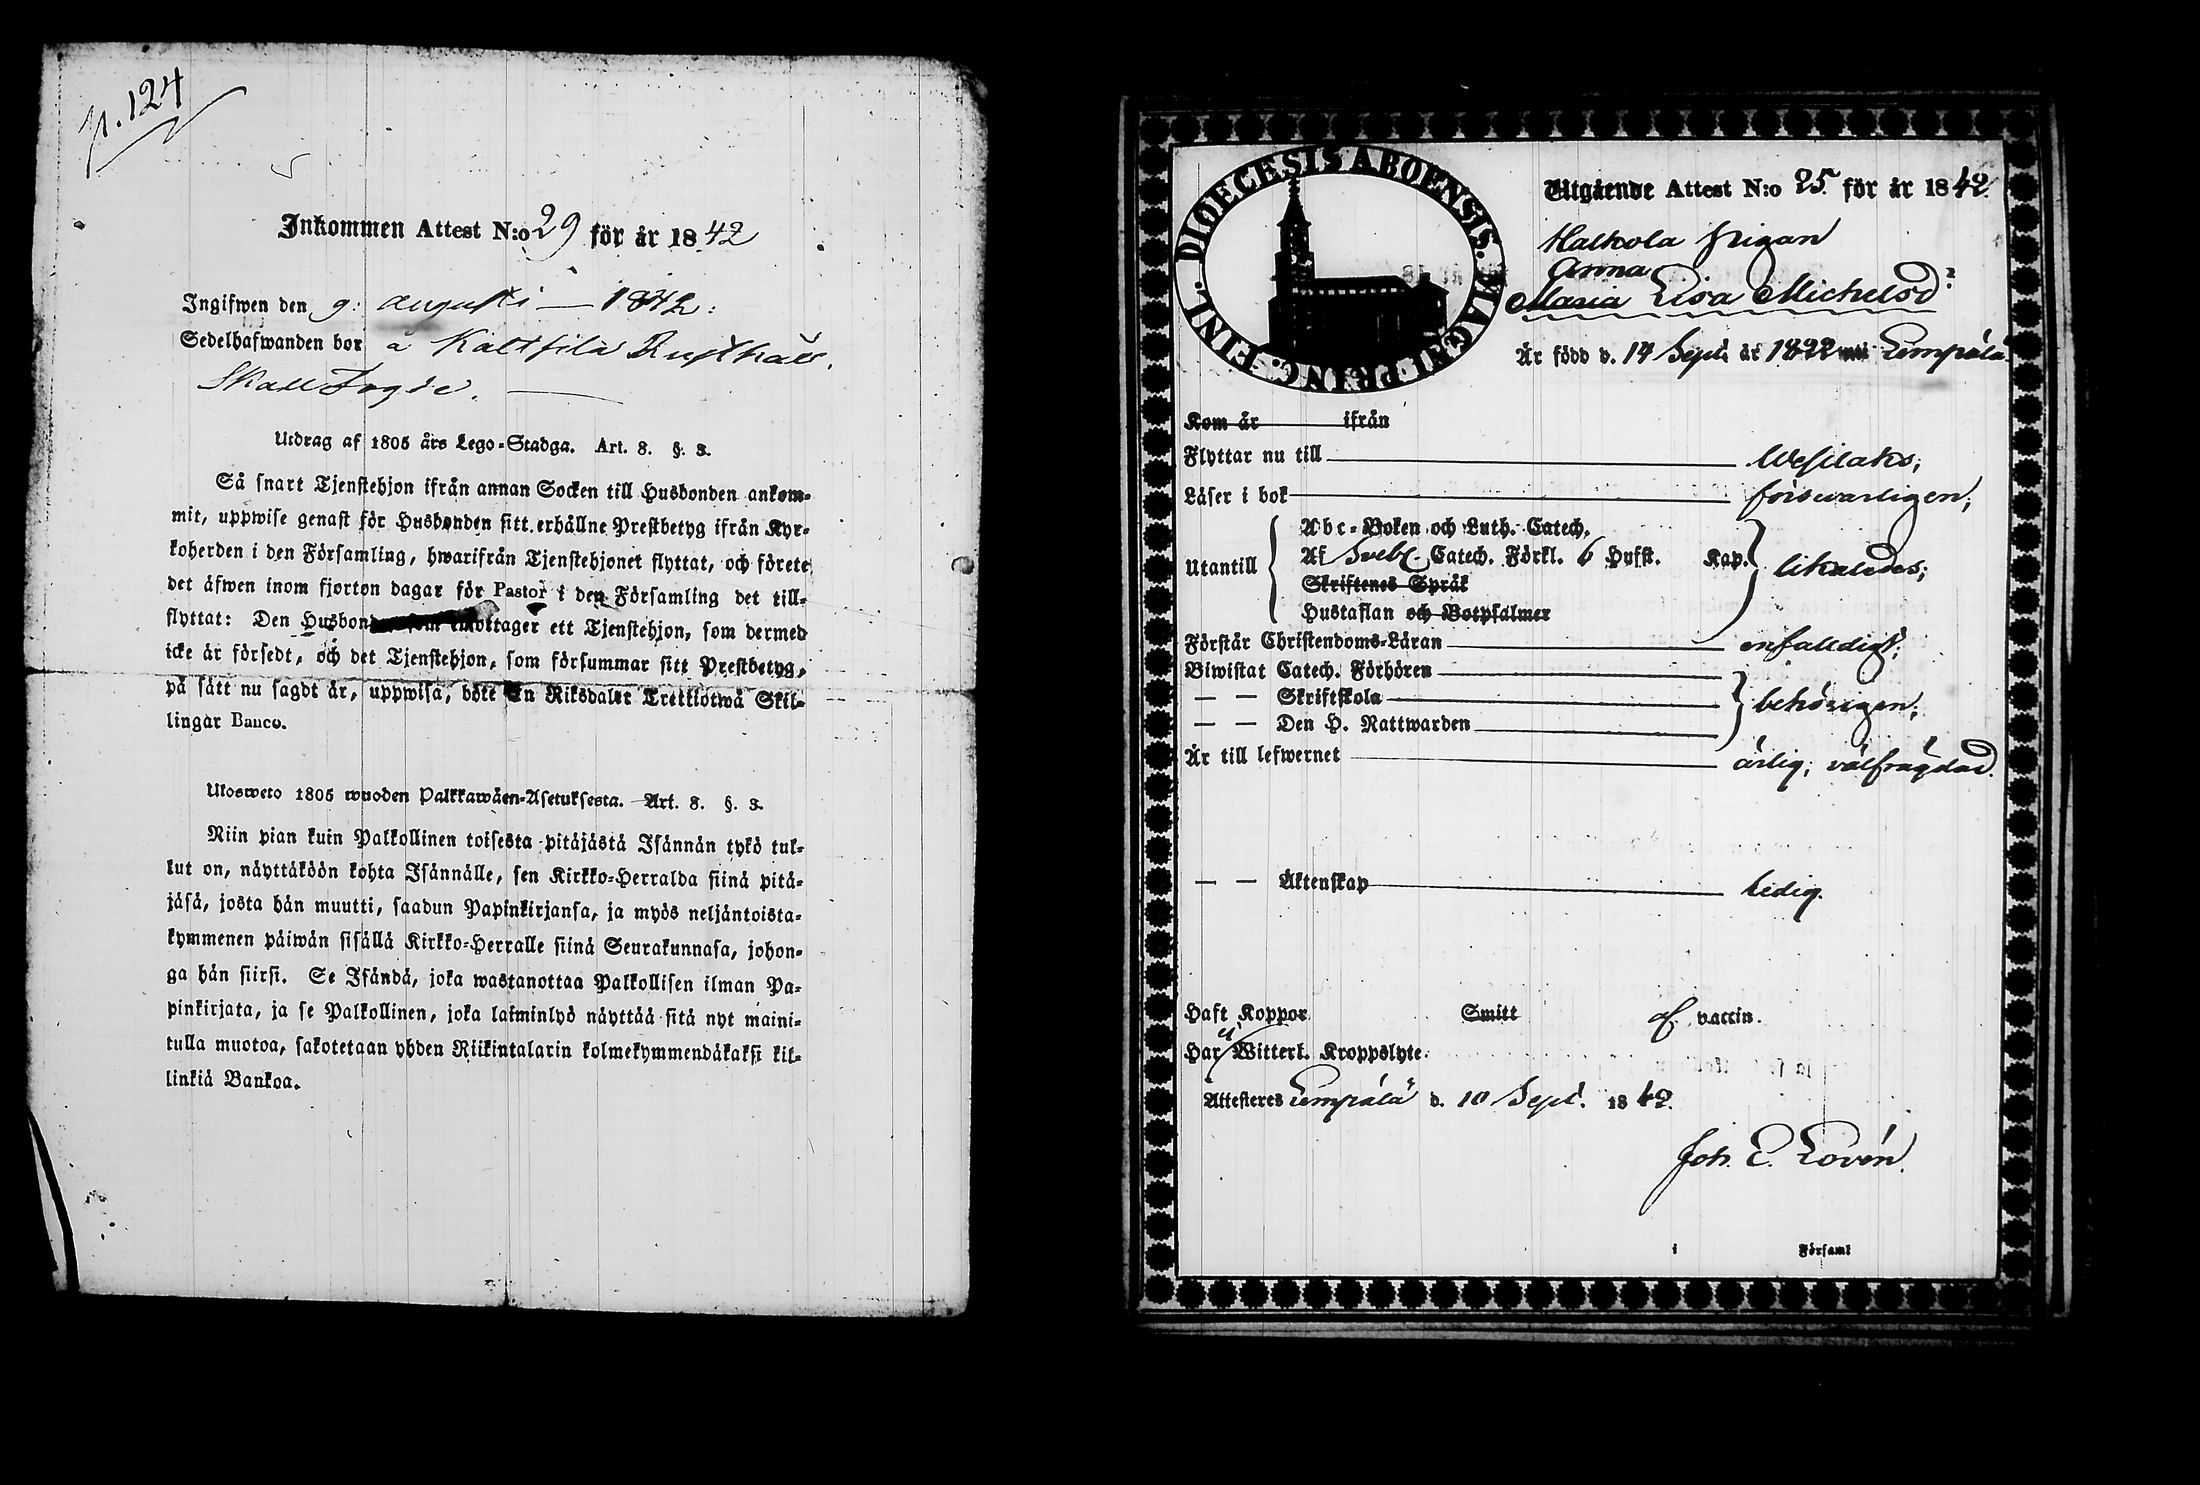 p. 124
Inkommen Attest N:o 29 för år 1842
Ingifwen den 9: augusti — 1842:
Sedelhafwanden bor å Kaltsila Rusthåll.
Skall
Utdrag af 1805 års Lego-Stadga. Art. 8. §. 3.
Så snart Tjenstehjon ifrån annan Socken till Husbonden ankom-
mit, uppwise genast för Husbonden sitt erhållne Prestbetyg ifrån Kyr-
koherden i den Församling, hwarifrån Tjenstehjonet flyttat, och förete
det äfwen inom fjorton dagar för Pastor i den Församling det till-
flyttat: Den Husbonde som emottager ett Tjenstehjon, som dermed
icke är försedt, och det Tjenstehjon, som försummar sitt Prestbetyg,
på sätt nu sagdt är, uppwisa, böte En Riksdaler Trettiotwå Skil-
lingar Banco.
Ulosweto 1805 wuoden Palkkawäen-Asetuksesta. Art. 8. §. 3.
Niin pian kuin Palkollinen toisesta pitäjästä Isännän tykö tul-
lut on, näyttäköön kohta Isännälle, sen Kirkko-Herralda siinä pitä-
jäsä, josta hän muutti, saadun Papinkirjansa, ja myös neljäntoista-
kymmenen päiwän sisällä Kirkko-Herralle siinä Seurakunnasa, johon-
ga hän siirsi. Se Isändä, joka wastanottaa Palkollisen ilman Pa-
pinkirjata, ja se Palkollinen, joka laiminlyö näyttää sitä nyt maini-
tulla muotoa, sakotetaan yhden Riikintalarin kolmekymmendäkaksi kil-
linkiä Bankoa.
DIOECESIS ABOENSIS. MAGNI PRINC. FINL.
Utgående Attest N:o 25 för år 1842.
Halkola Pigan
Anna
Maria Lisa Michelsd:r
Är född d. 14 Sept. år 1822 uti Lempälä
Kom år ifrån
Flyttar nu till Wesilaks;
Läser i bok försvarligen;
Abc-Boken och Luth. Catech.
Utantill Af Svebl. Catech. Förkl. 6 Hufst. Kap. likaledes;
Skriftenes Språk
Hustaflan och Botpsalmer
Förstår Christendoms-Läran enfalldigt;
Biwistat Catech. Förhören
— — Skriftskola behörigen;
— — Den H. Nattwarden
Är till lefwernet ärlig; välfrägdad.
— — Äktenskap ledig.
Haft Koppor Smitt af vaccin.
Har ej Witterl. Kroppslyte.
Attesteres Lempälä d. 10 Sept. 1842.
Joh. E. Lovén.
i Församl